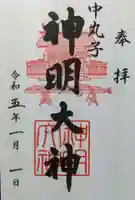 奉拝
中丸子
神明大神
令和五年一月一日